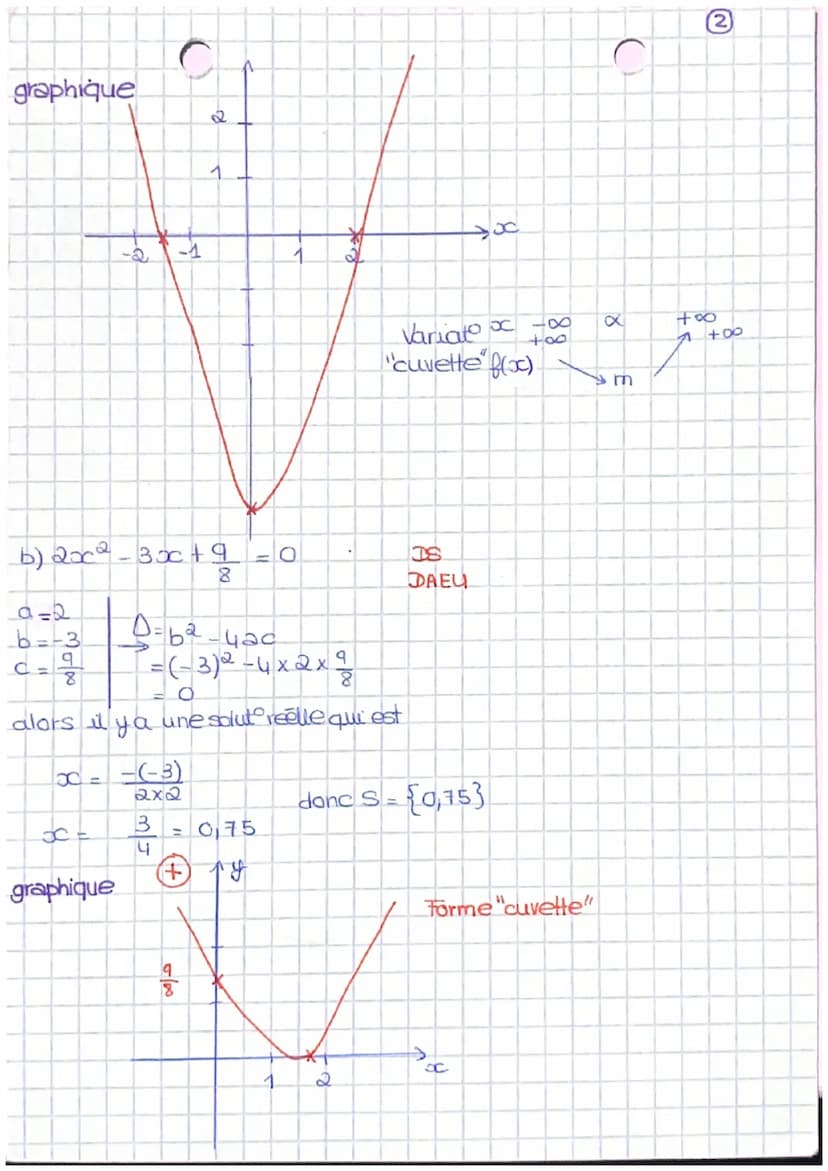 ②
graphique
2
1
-2 -1 1 2 x
Variat° x -∞ α +∞
"cuvette" f(x) +∞ m +∞
b) 2x² - 3x + 9/8 = 0
DS
DAEU
a = 2
b = -3
c = 9/8
Δ = b² - 4ac
= (-3)² - 4 × 2 × 9/8
= 0
alors il y a une solut° réelle qui est
x = -(-3)/2×2
x = 3/4 = 0,75
donc S = {0,75}
graphique
+
y
Forme "cuvette"
9/8
1 2 x